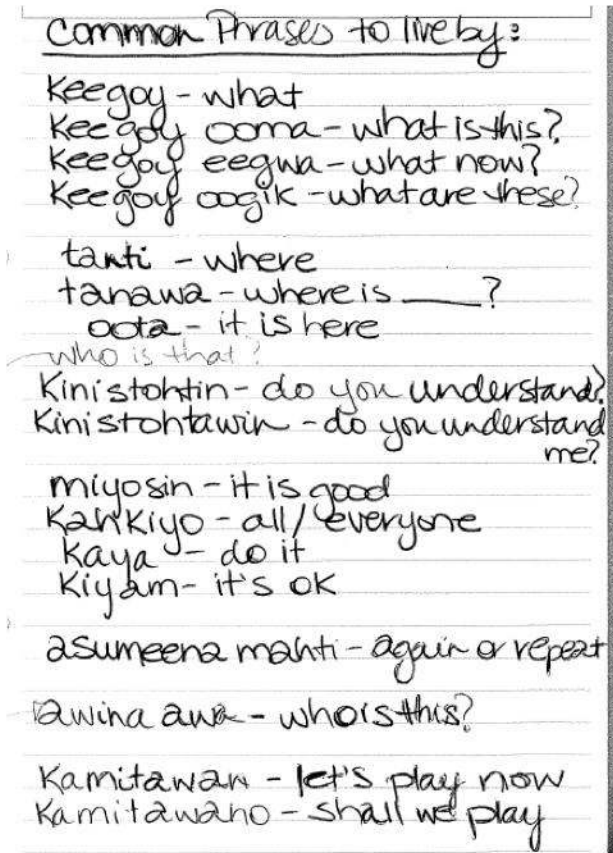 Common Phrases to live by:
Keegoy - what
Keegoy ooma - what is this?
Keegoy eegwa - what now?
Keegoy oogik - what are these?
tanti - where
tanawa - where is ____?
oota - it is here
who is that?
Kinistohtin - do you understand?
Kinistohtawin - do you understand
me?
miyosin - it is good
Kahkiyo - all / everyone
Kaya - do it
Kiyam - it's OK
asumeena mahti - again or repeat
awina awa - who is this?
Kamitawan - let's play now
Kamitawano - shall we play